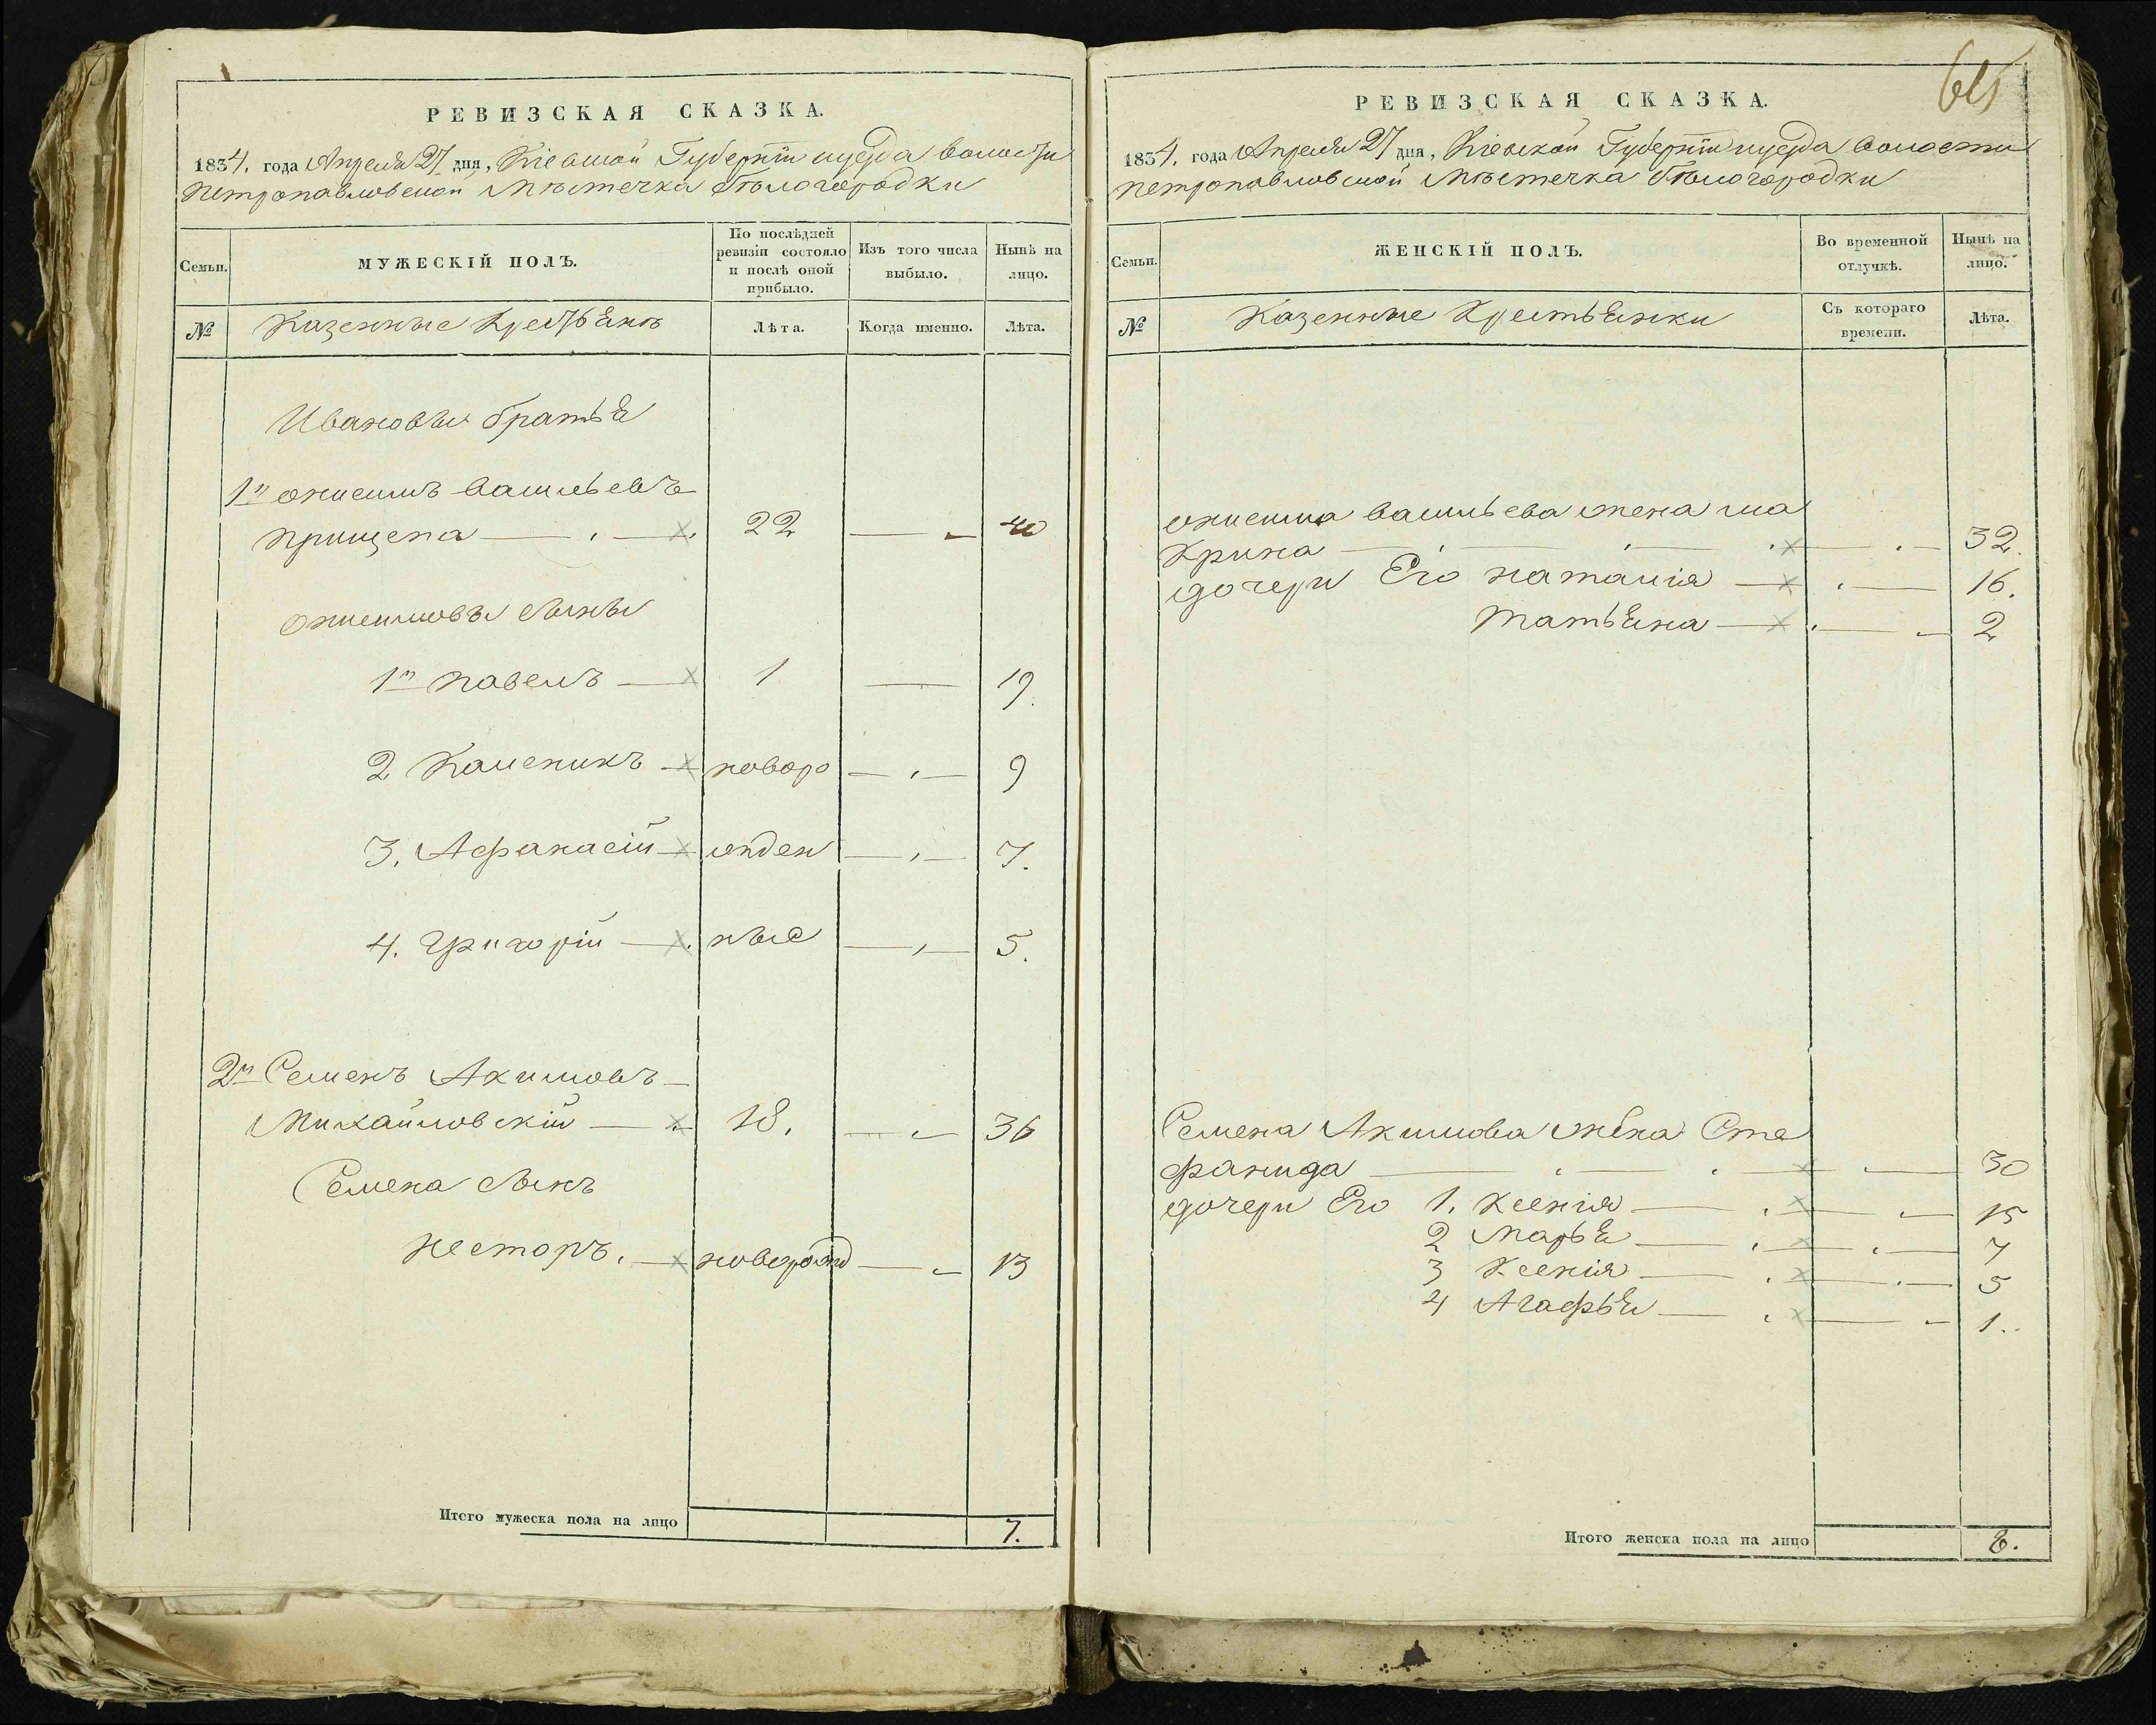 РЕВИЗСКАЯ СКАЗКА.
1834. года Апреля 27 дня, Кіевской Губерніи иуезда волости
петропавловской Мѣстечка Бѣлогородки
Семьи.
МУЖЕСКІЙ ПОЛЪ.
По послѣдней ревизіи состояло и послѣ оной прибыло.
Изъ того числа выбыло.
Нынѣ на лицо.
№
Казенные Крестьяне
Лѣта.
Когда именно.
Лѣта.
Ивановы братья
1й онисимъ васильевъ
прищепа 22 40
онисимовы сыны
1й павелъ 1 19.
2 Каленикъ новоро 9
3. Афанасій жден 7.
4. Григорій ные 5.
2й Семенъ Акимовъ
Михайловскій 18. 36
Семена сынъ
Несторъ. новорожд 13
Итого мужеска пола на лицо 7.
615
РЕВИЗСКАЯ СКАЗКА.
1834. года Апреля 27 дня, Кіевской Губерніи иуезда волости
петропавловской Мѣстечка Бѣлогородки
Семьи.
ЖЕНСКІЙ ПОЛЪ.
Во временной отлучкѣ.
Нынѣ на лицо.
№
Казенные Крестьянки
Съ котораго времени.
Лѣта.
онисима васильева жена ма
крина 32.
дочери Его наталія 16.
татьяна 2
Семена Акимова жена Сте
фанида 30
дочери Его 1. Ксенія 15
2 Марья 7
3 Ксенія 5
4 Агафья 1.
Итого женска пола на лицо 8.